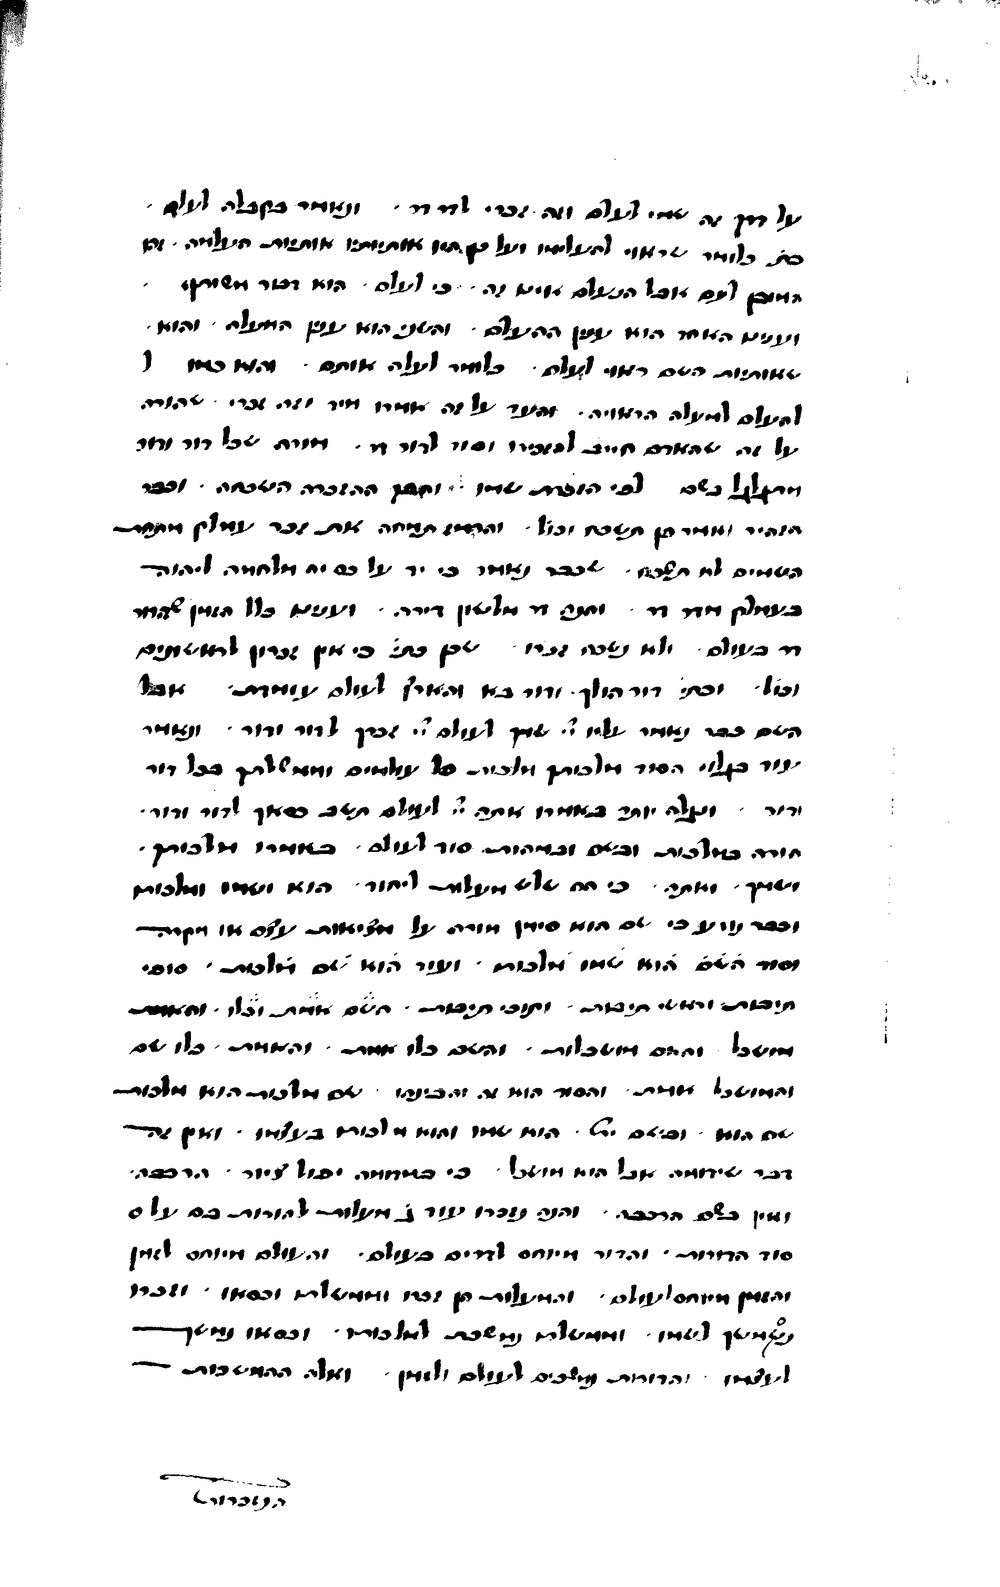 על דרך זה שמי לעלם וזה זכרי לדר דר · ונאמר בקבלה לעלם ·
כת׳ כלומר שראוי להעלימו ועל כן היו אותיותיו אותיות העלמה · זהו
המובן לעם אבל הנעלם אינו זה · כי לעלם · הוא דבור משותף ·
ועניינו האחד הוא עניין ההעלם · והשני הוא עניין המעלה · והוא ·
שאותיות השם ראוי לעלם · כלומר לעלה אותם · והוא כמו
להעלם למעלה הראויה · והעד על זה אמרו מיד וזה זכרי · שהורה
על זה שהאדם חייב להזכירו וסוד לדור דר · מורה שכל דור ודור
מתגלגל בשם לפי הזכרת שמו · והפך ההזכרה השכחה · וכבר
הזהיר ואמר פן תשכח וכול׳ · והרמז תמחה את זכר עמלק מתחת
השמים לא תשכח · שכבר נאמר כי יד על כס יה מלחמה ליהוה
בעמלק מדר דר · והנה דר מלשון דירה · ועניינו כלל הזמן שהדור
דר בעולם · ולא נשכח זכרו · שכן כת׳ כי אין זכרון לראשונים
וכול׳ · וכתי׳ דור הולך · ודור בא והארץ לעולם עומדת · אבל
השם כבר נאמר עליו יי׳ שמך לעולם יי׳ זכרך לדור ודור · ונאמר
עוד בגלוי הסוד מלכותך מלכות כל עולמים וממשלתך בכל דור
ודור · ונגלה יותר באמרו אתה יי׳ לעולם תשב כסאך לדור ודור ·
הורה במלכות ובשם ובמהות סוד לעולם · באמרו מלכותך ·
ושמך · ואתה · כי הם שלש מעלות ליחוד · הוא ושמו ומלכותו
וכבר נודע כי שם הוא סימן מורה על מציאות עצם או מקרה
וסוד השם הוא שמו מלכותו · ועוד הוא שם מלכות · סופי
תיבות וראשי תיבות · ותוכי תיבות · השם אמת וכלו · והאמת
מושכל והשם מושכלות · והשם כלו אמת · והאמת · כלו שם
והמושכל אמת · והסוד הוא זה והבינהו · שם מלכות הוא מלכות
שם הוא · ובשם ית׳ · הוא שמו והוא מלכותו בעצמו · ואין זה
דבר שידומה אבל הוא מושכל · כי במדומה יפול ציור · הרכבה ·
ואין בשם הרכבה · והנה נזכרו עוד ג׳ מעלות להורות בם על ס
סוד הדורות · והדור מיוחס לדרים בעולם · והעולם מיוחס לזמן
והזמן מיוחס לעולם · והמעלות הן זכרו וממשלתו וכסאו · וזכרו
נמשך לשמו · וממשלתו נמשכת למלכותו · וכסאו נמשך
לעצמו · והדורות נמשכים לעולם ולזמן · ואלה ההמשכות
הנזכרות